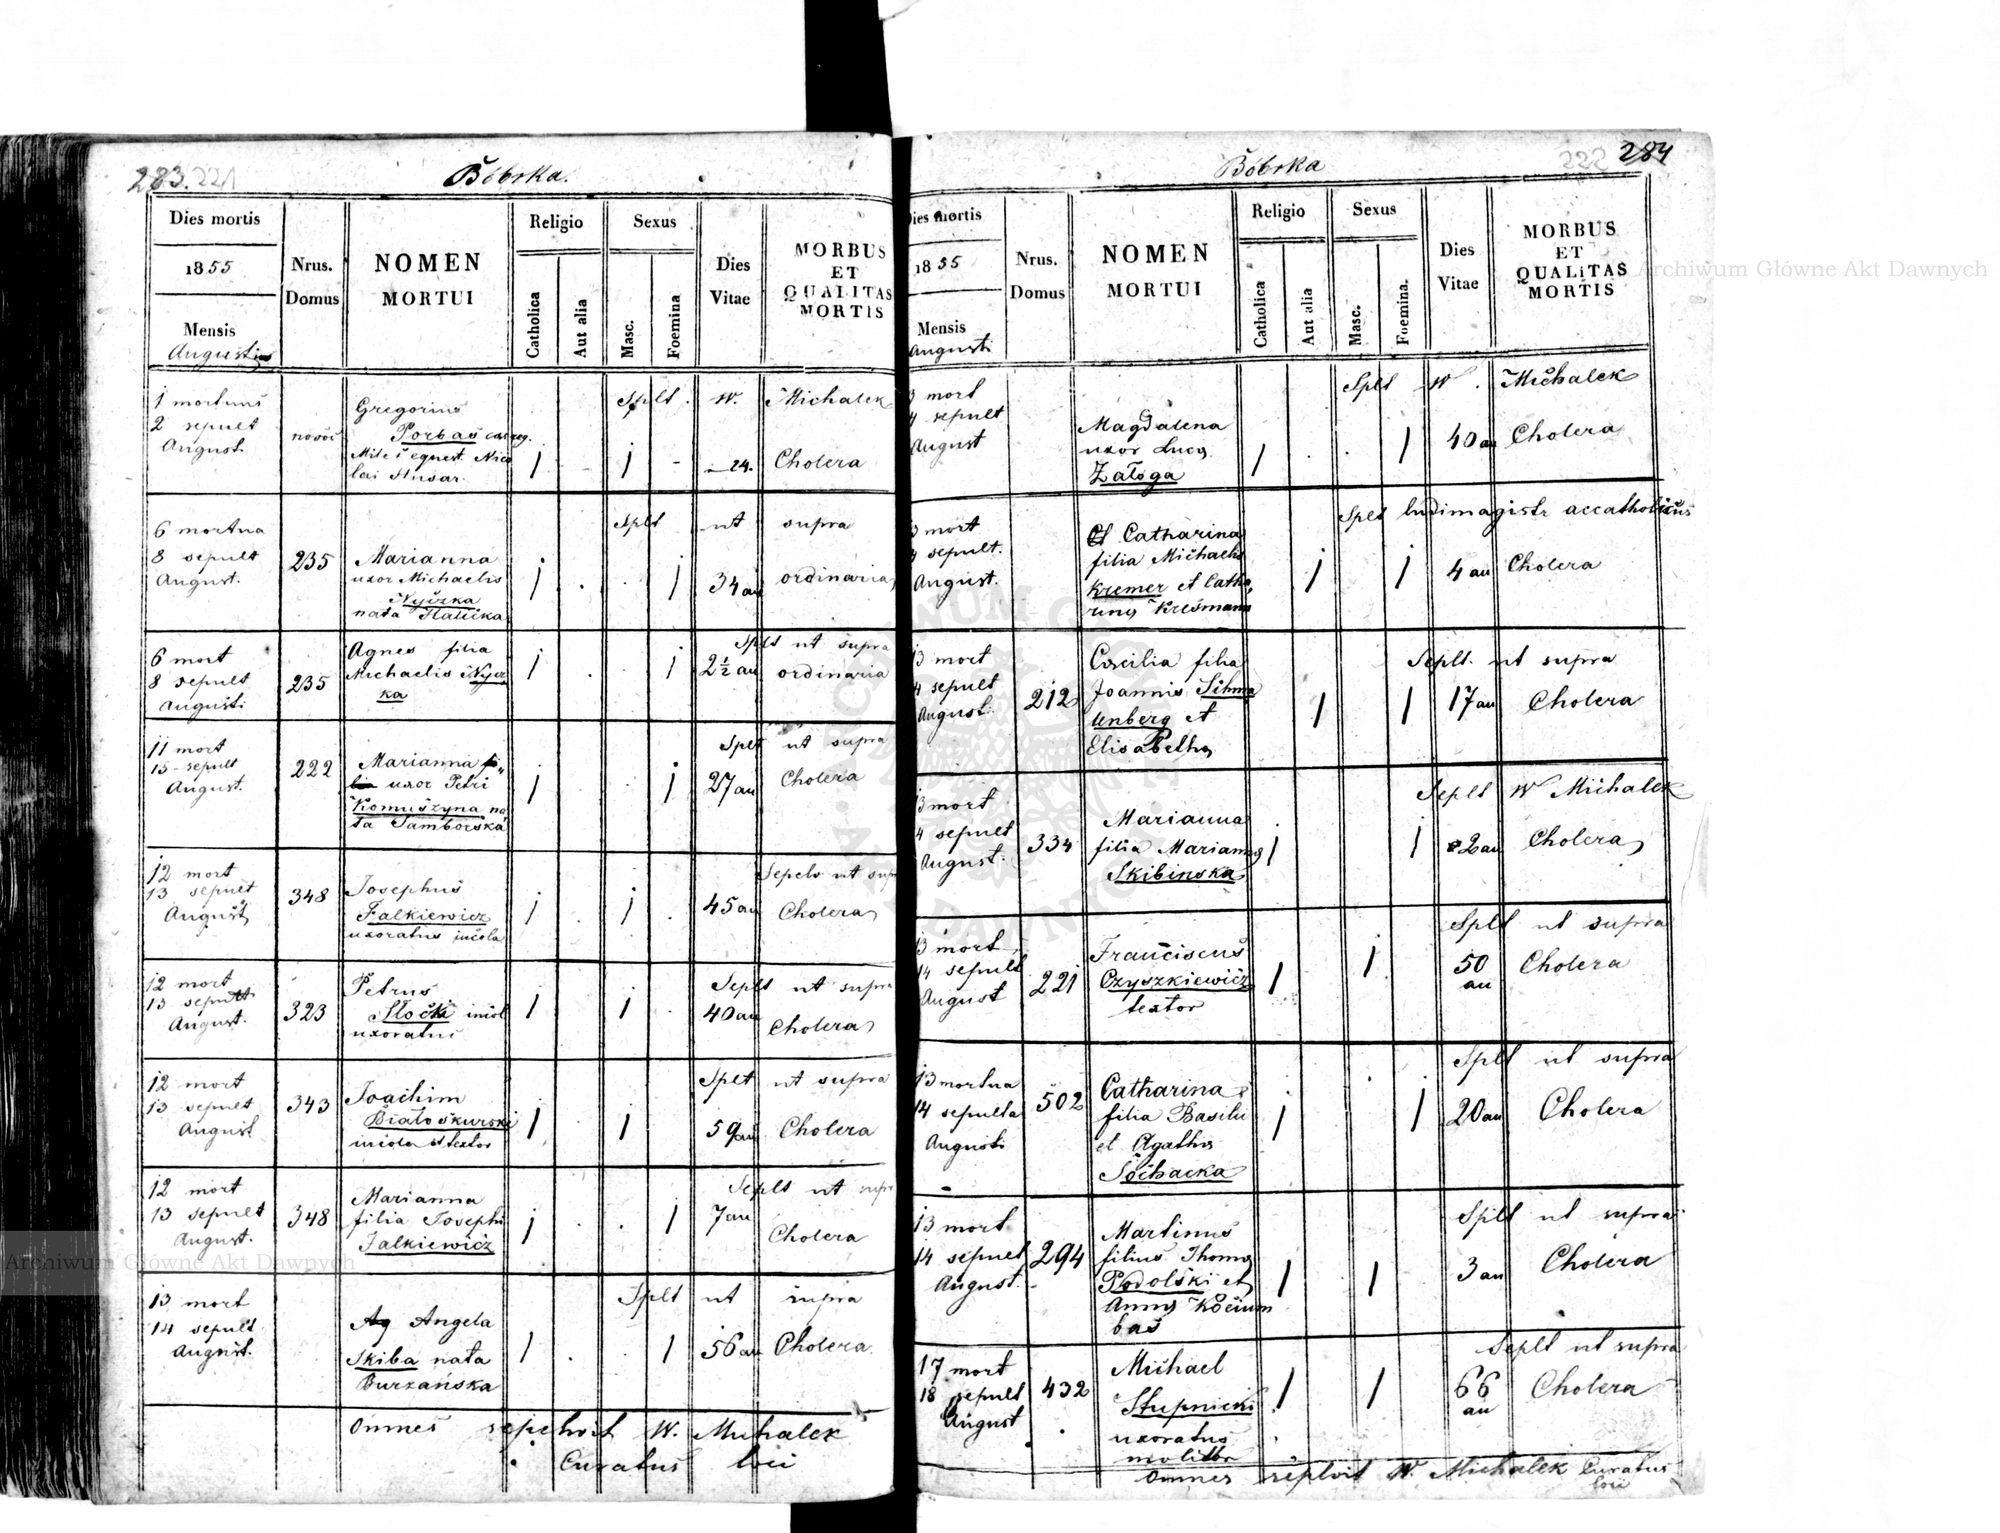 283. 221
Bóbrka.
Dies mortis
1855
Mensis
Augustius
Nrus.
Domus
NOMEN
MORTUI
Religio
Catholica
Aut alia
Sexus
Masc.
Foemina
Dies
Vitae
MORBUS
ET
QUALITAS
MORTIS
1 mortuus
2 sepult
August.
Gregorius
Porbas
Miles equest. Nico
lai Husar.
Splt. W. Michalek
24.
Cholera
6 mortua
8 sepult
August.
235
Marianna
uxor Michaelis
Nyczka
nata Halicka
Splt ut supra
34 an
ordinaria
6 mort
8 sepult
Augusti
235
Agnes filia
Michaelis Nycz
ka
Splt ut supra
2½ an
ordinaria
11 mort
15 - sepult
August.
222
Marianna fi-
lia uxor Petri
Komuszyna na
ta Samborska
Splt ut supra
27 an
Cholera
12 mort
13 sepult
August
348
Josephus
Falkiewicz
uxoratus incola
ut supra
45 an
Cholera
12 mort
13 sepult
August.
323
Petrus
Słocki incol
uxoratus
Seplt ut supra
40 an
Cholera
12 mort
13 sepult
August
343
Joachim
Białoskurski
incola et textor
Splt ut supra
59 an
Cholera
12 mort
13 sepult
August.
348
Marianna
filia Josephi
Falkiewicz
Seplt ut supr
7 an
Cholera
13 mort
14 sepult
August.
Ag Angela
Skiba nata
Burzańska
Splt ut supra
56 an
Cholera
Omnes sepelivit W. Michalek
Curatus loci
222 284
Bóbrka
Dies mortis
1855
Mensis
Augusti
Nrus.
Domus
NOMEN
MORTUI
Religio
Catholica
Aut alia
Sexus
Masc.
Foemina.
Dies
Vitae
MORBUS
ET
QUALITAS
MORTIS
3 mort
4 sepult
August
Magdalena
uxor Luca
Załoga
Splt W. Michalek
40 an
Cholera
3 mort
4 sepult.
August.
Catharina
filia Michaelis
Kremer et Catha
rina Kresmann
Splt ludimagistr accatholicus
4 an
Cholera
13 mort
4 sepult
August.
212
Cæcilia filia
Joannis
et
Elisabetha
Seplt. ut supra
17 an
Cholera
13 mort
4 sepult
August.
334
Marianna
filia Marianna
Skibinska
Seplt W Michalek
2 an
Cholera
13 mort
14 sepult
August
221
Franciscus
Czyszkiewicz
textor
Splt ut supra
50
an
Cholera
13 mortua
14 sepulta
Augusti
502
Catharina
filia Basilii
et Agatha
Sochacka
Splt ut supra
20 an
Cholera
13 mort
14 sepult
August.
294
Martinus
filius Thoma
Podolski et
Anna Kocium
bas
Splt ut supra
3 an
Cholera
17 mort
18 sepult
August
432
Michael
Stupnicki
uxoratus
molitor
Seplt ut supra
66
an
Cholera
Omnes seplvit W. Michalek Curatus
loci
Archiwum Główne Akt Dawnych
Archiwum Główne Akt Dawnych
ARCHIWUM GŁÓWNE
AKT DAWNYCH